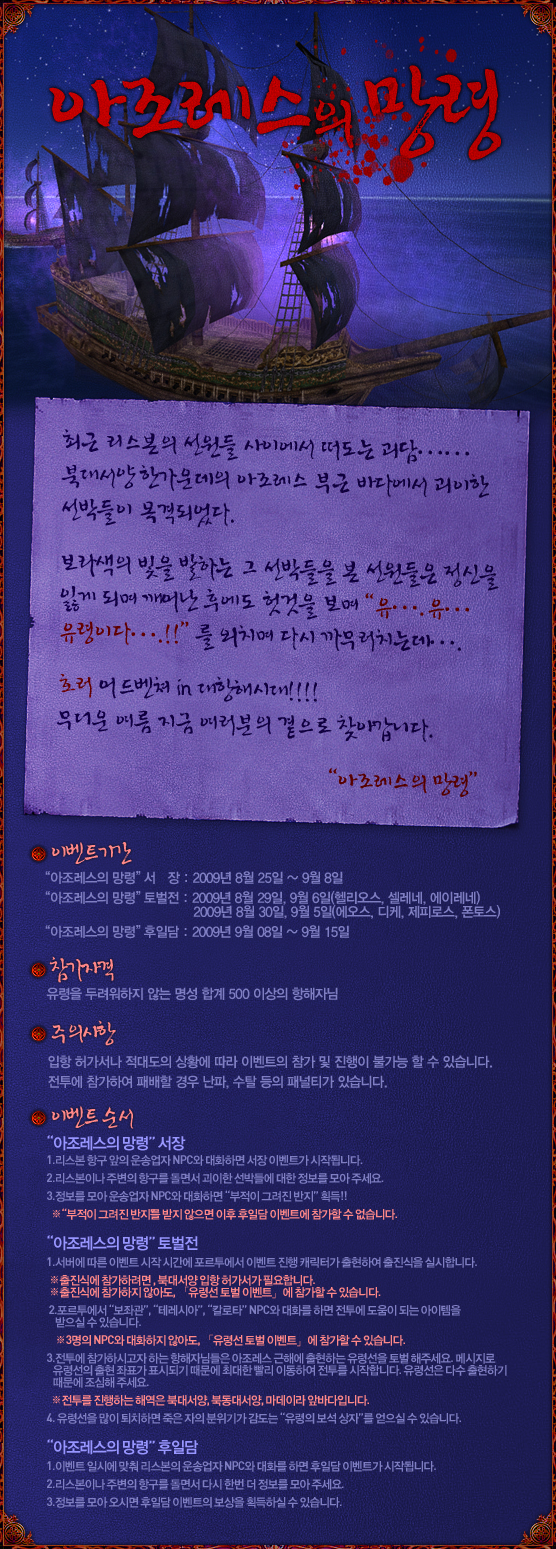 아조레스의 망령
최근 리스본의 선원들 사이에서 떠도는 괴담……
북대서양 한가운데의 아조레스 부근 바다에서 괴이한
선박들이 목격되었다.
보라색의 빛을 발하는 그 선박들을 본 선원들은 정신을
잃게 되며 깨어난 후에도 헛것을 보며 “유…. 유…
유령이다….!!” 를 외치며 다시 까무러치는데….
호러 어드벤쳐 in 대항해시대!!!!
무더운 여름 지금 여러분의 곁으로 찾아갑니다.
“아조레스의 망령”
이벤트기간
“아조레스의 망령” 서 장 : 2009년 8월 25일 ~ 9월 8일
“아조레스의 망령” 토벌전 : 2009년 8월 29일, 9월 6일(헬리오스, 셀레네, 에이레네)
2009년 8월 30일, 9월 5일(에오스, 디케, 제피로스, 폰토스)
“아조레스의 망령” 후일담 : 2009년 9월 08일 ~ 9월 15일
참가자격
유령을 두려워하지 않는 명성 합계 500 이상의 항해자님
주의사항
입항 허가서나 적대도의 상황에 따라 이벤트의 참가 및 진행이 불가능 할 수 있습니다.
전투에 참가하여 패배할 경우 난파, 수탈 등의 패널티가 있습니다.
이벤트 순서
“아조레스의 망령” 서장
1.리스본 항구 앞의 운송업자 NPC와 대화하면 서장 이벤트가 시작됩니다.
2.리스본이나 주변의 항구를 돌면서 괴이한 선박들에 대한 정보를 모아 주세요.
3.정보를 모아 운송업자 NPC와 대화하면 “부적이 그려진 반지” 획득!!
※ “부적이 그려진 반지를 받지 않으면 이후 후일담 이벤트에 참가할 수 없습니다.
“아조레스의 망령” 토벌전
1.서버에 따른 이벤트 시작 시간에 포르투에서 이벤트 진행 캐릭터가 출현하여 출진식을 실시합니다.
※출진식에 참가하려면 , 북대서양 입항 허가서가 필요합니다.
※출진식에 참가하지 않아도, 「유령선 토벌 이벤트」에 참가할 수 있습니다.
2.포르투에서 “보좌관”, “테레시아”, “칼로타” NPC와 대화를 하면 전투에 도움이 되는 아이템을
받으실 수 있습니다.
※3명의 NPC와 대화하지 않아도, 「유령선 토벌 이벤트」에 참가할 수 있습니다.
3.전투에 참가하시고자 하는 항해자님들은 아조레스 근해에 출현하는 유령선을 토벌 해주세요. 메시지로
유령선의 출현 좌표가 표시되기 때문에 최대한 빨리 이동하여 전투를 시작합니다. 유령선은 다수 출현하기
때문에 조심해 주세요.
※전투를 진행하는 해역은 북대서양, 북동대서양, 마데이라 앞바다입니다.
4. 유령선을 많이 퇴치하면 죽은 자의 분위기가 감도는 “유령의 보석 상자”를 얻으실 수 있습니다.
“아조레스의 망령” 후일담
1.이벤트 일시에 맞춰 리스본의 운송업자 NPC와 대화를 하면 후일담 이벤트가 시작됩니다.
2.리스본이나 주변의 항구를 돌면서 다시 한번 더 정보를 모아 주세요.
3.정보를 모아 오시면 후일담 이벤트의 보상을 획득하실 수 있습니다.